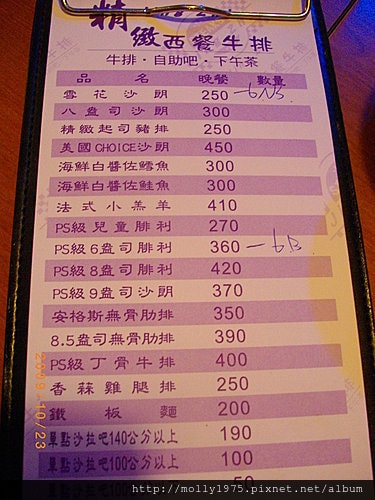 精緻西餐牛排
牛排·自助吧·下午茶
品名 晚餐 數量
雪花沙朗 250
八盎司沙朗 300
精緻起司豬排 250
美國CHOICE沙朗 450
海鮮白醬佐鱈魚 300
海鮮白醬佐鮭魚 300
法式小羔羊 410
PS級兒童腓利 270
PS級6盎司腓利 360
PS級8盎司腓利 420
PS級9盎司沙朗 370
安格斯無骨肋排 350
8.5盎司無骨肋排 390
PS級丁骨牛排 400
香蒜雞腿排 250
鐵板麵 200
單點沙拉吧140公分以上 190
單點沙拉吧100公分以上 100
2009/10/23
http://molly1975.pixnet.net/album